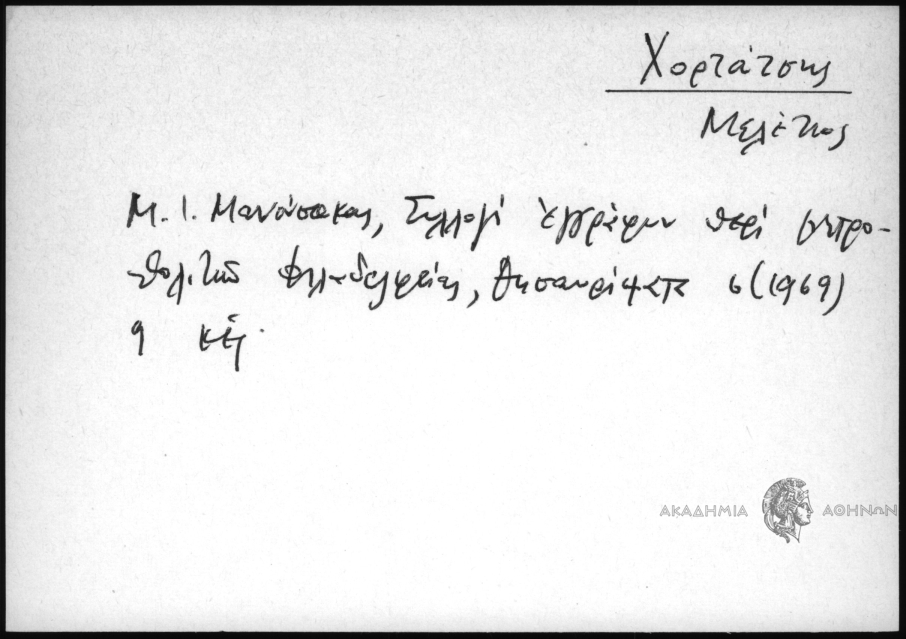 Χορτάτσης
Μελέτιος
Μ. Ι. Μανούσακας, Συλλογή ἐγγράφων περί μητρο-
πολιτῶν Φιλαδελφείας, Θησαυρίσματα 6 (1969)
9 κἑ.
ΑΚΑΔΗΜΙΑ ΑΘΗΝΩΝ